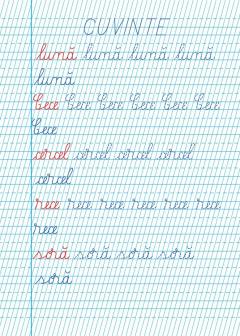 CUVINTE
lună lună lună lună
lună
Cece Cece Cece Cece Cece Cece
Cece
cercel cercel cercel cercel
cercel
rece rece rece rece rece rece
rece
soră soră soră soră
soră